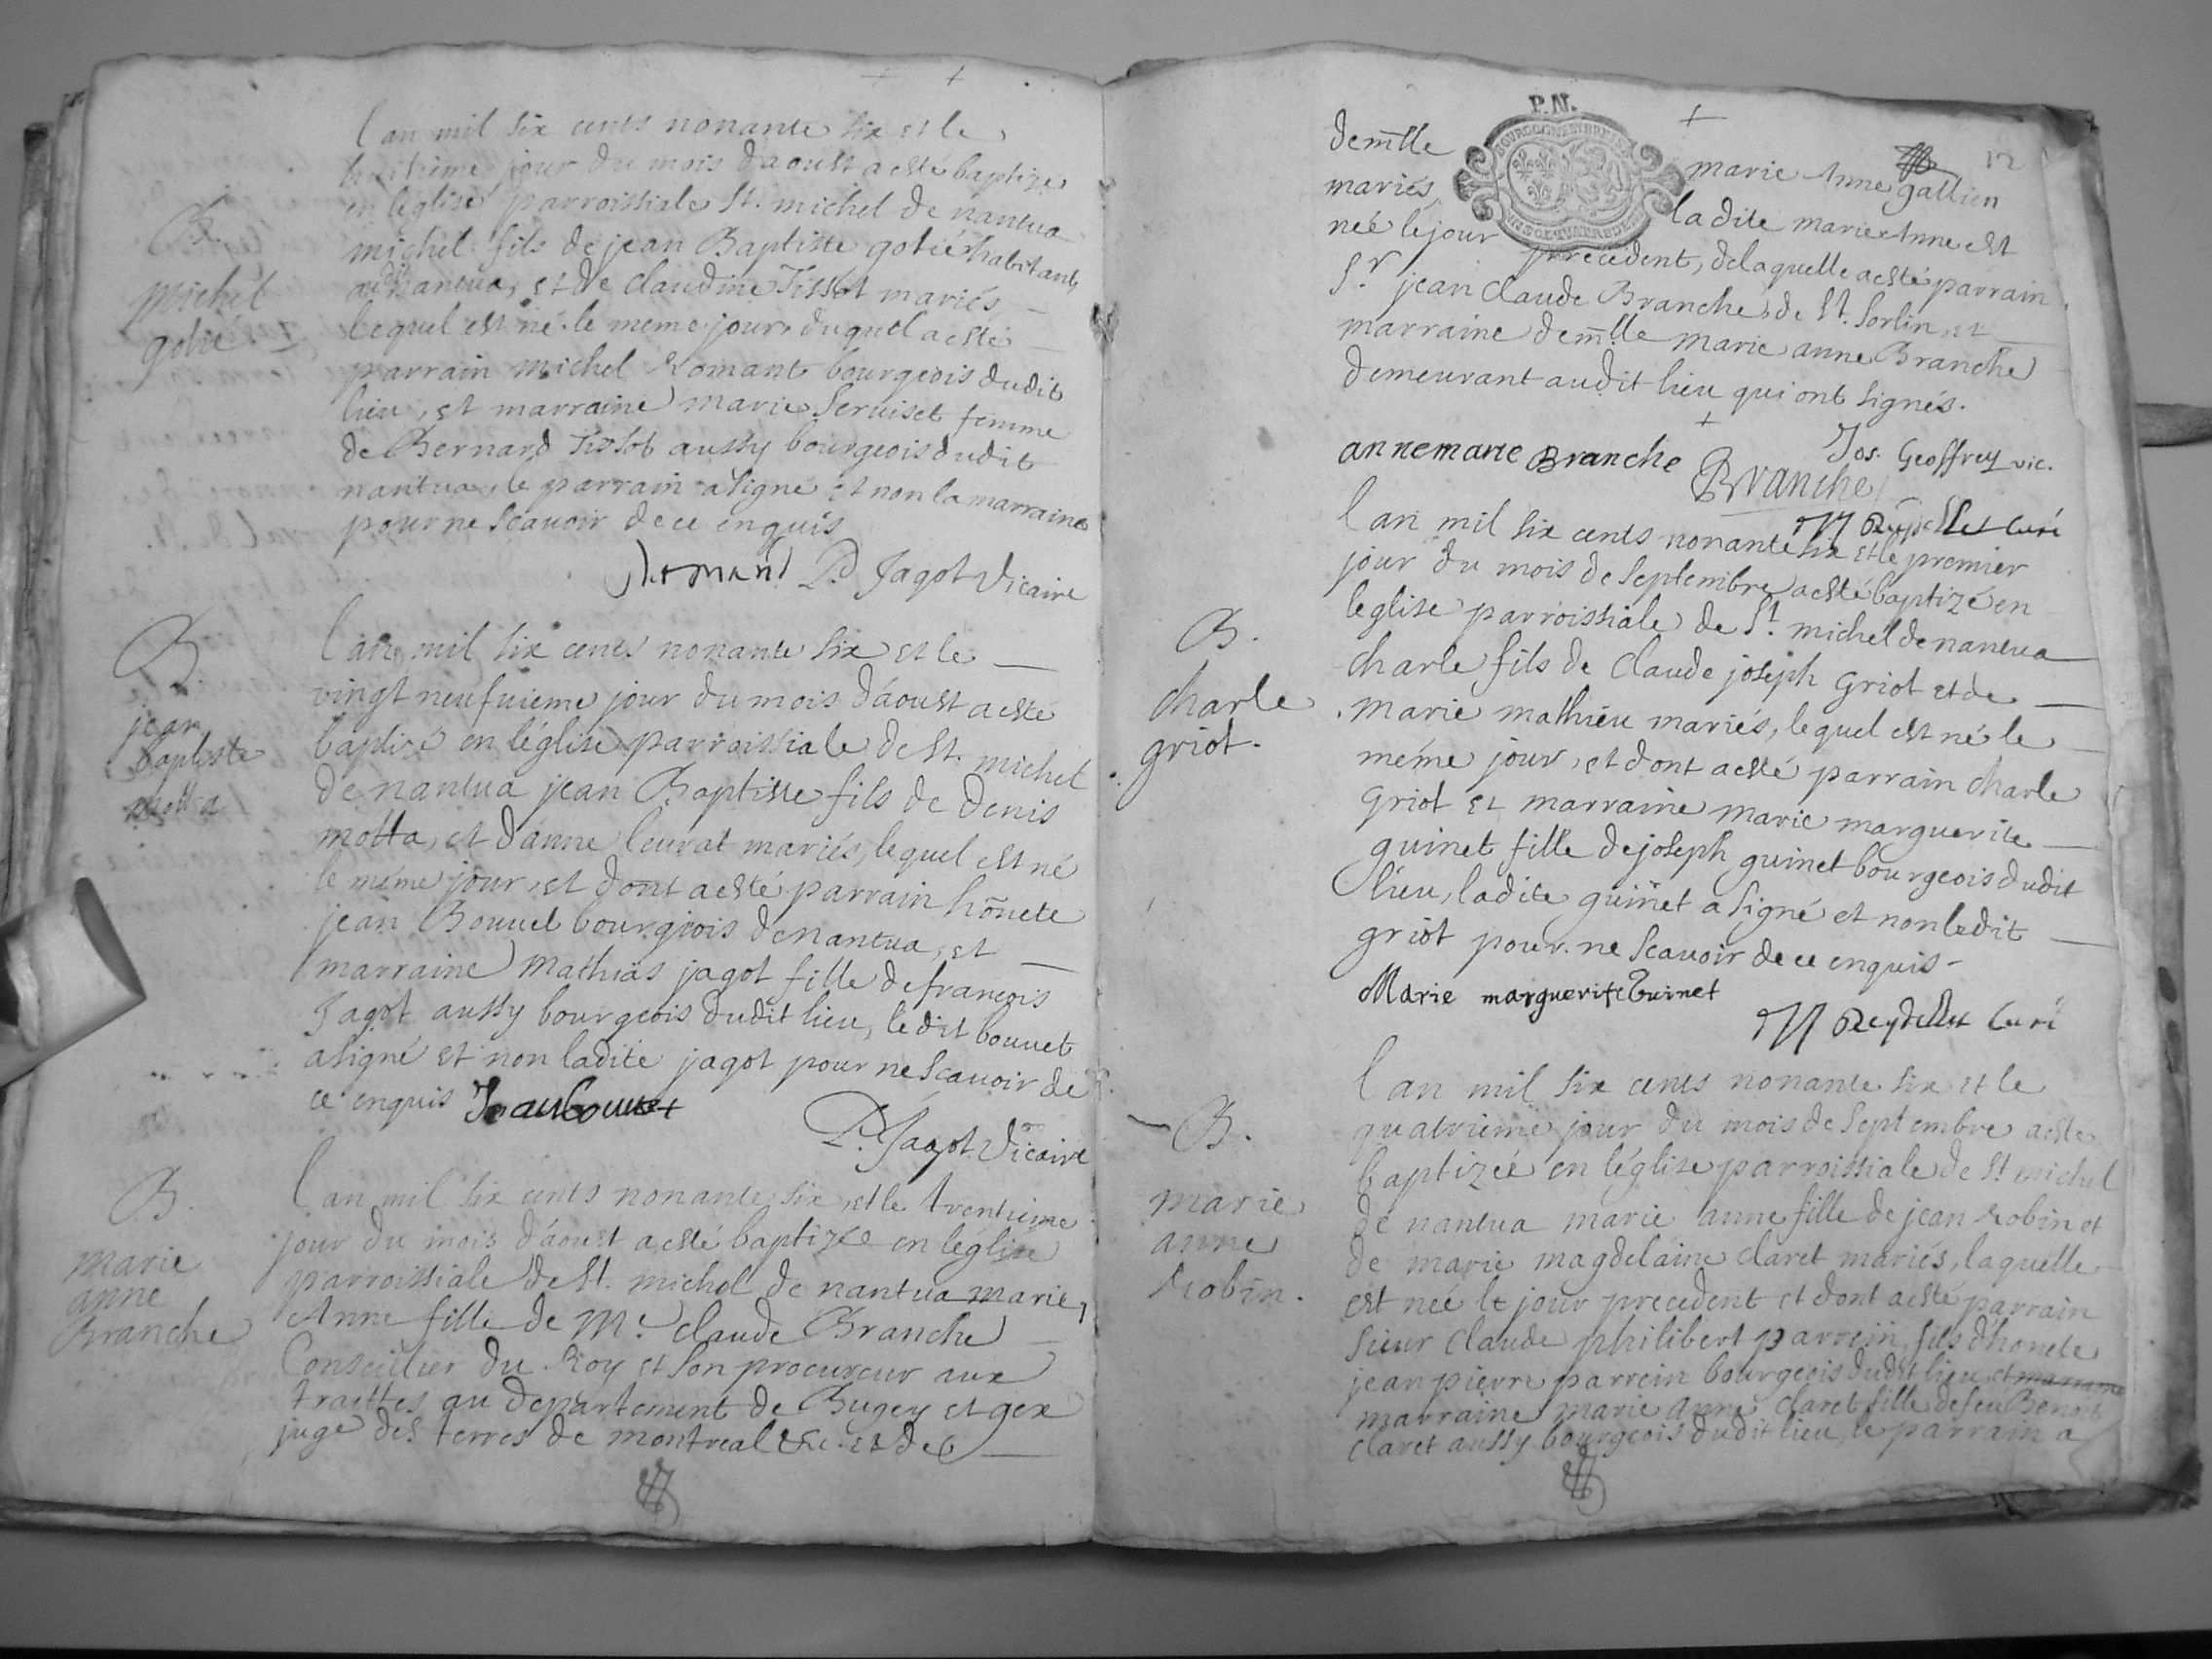 l'an mil six cents nonante six et le
huitieme jour du mois d'aoust a esté baptizé
en l'eglise parroissiale St. michel de nantua
michel fils de jean Baptiste gotié habitant
audit nantua, et de Claudine Tissot mariés
lequel est né le meme jour, duquel a esté
parrain michel Romant bourgeois dudit
lieu, et marraine marie Seruiset femme
de Bernard Tissot aussy bourgeois dudit
nantua, le parrain a signé et non la marraine
pour ne scavoir de ce enquis
Romant P. Jagot Vicaire
B.
michel
gotié
l'an mil six cents nonante six et le
vingt neufuieme jour du mois d'aoust a esté
baptizé en l'église parroissiale de St. michel
de nantua jean Baptiste fils de denis
motta, et d'anne leurat mariés, lequel est né
le méme jour, et dont a esté parrain hõnete
jean Bouuet bourgeois de nantua, et
marraine mathias jagot fille de françois
Jagot aussy bourgeois dudit lieu, le dit bouuet
a signé et non ladite jagot pour ne scavoir de
ce enquis Jean bouuet
P. Jagot Vicaire
B.
jean
baptiste
motta
l'an mil six cents nonante six, et le trentieme
jour du mois d'aoust a esté baptizée en leglise
parroissiale de St. michel de nantua marie
Anne fille de Mr. Claude Branche
Conseillier du Roy et son procureur aux
traittes au departement de Bugey et gex
juge des terres de montreal &c. et de
B.
marie
anne
Branche
P.N.
12
demlle marie Anne gallien
mariés, la dite marie Anne est
neé le jour precedent, de laquelle a esté parrain
Sr. jean Claude Branche de St. Sorlin et
marraine demlle marie anne Branche
demeurant audit lieu qui ont signés.
Jos. Geoffrey vic.
anne marie Branche Branche
M Reydellet Curé
l'an mil six cents nonante six et le premier
jour du mois de Septembre a esté baptizé en
leglise parroissiale de St. michel de nantua
charle fils de Claude joseph Griot et de
marie mathieu mariés, lequel est né le
méme jour, et dont a esté parrain charle
Griot et marraine marie marguerite
guinet fille de joseph guinet bourgeois dudit
lieu, ladite guinet a signé et non ledit
griot pour ne scavoir de ce enquis
Marie marguerite Guinet
M Reydellet Curé
B.
charle
griot.
l'an mil six cents nonante six et le
quatrieme jour du mois de Septembre a esté
baptizée en léglise parroissiale de St michel
de nantua marie anne fille de jean robin et
de marie magdelaine Claret mariés, laquelle
est neé le jour precedent et dont a esté parrain
Sieur Claude philibert parrein, fils d'honete
jean pierre parrein bourgeois dudit lieu, et marraine
marraine marie anne Claret fille de feu Benoit
Claret aussy bourgeois dudit lieu, le parrain a
B.
marie
anne
robin.